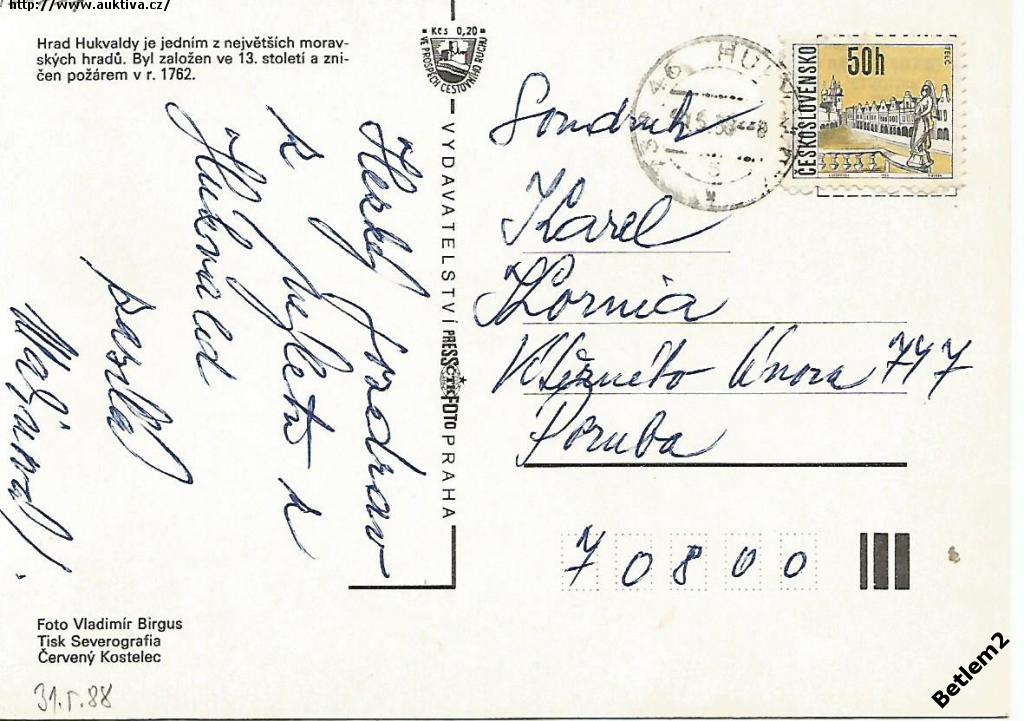 http://www.auktiva.cz/
Hrad Hukvaldy je jedním z největších morav-
ských hradů. Byl založen ve 13. století a zni-
čen požárem v r. 1762.
Kčs 0,20
VE PROSPĚCH CESTOVNÍHO RUCHU
VYDAVATELSTVÍ PRESSFOTO PRAHA
ČTK
ČESKOSLOVENSKO
50h
TELČ
Hezký pozdrav
z výletu z
Hukvald
posílá
Soudruh
Karel
Hornia
Vítězného Února 747
Poruba
70800
Foto Vladimír Birgus
Tisk Severografia
Červený Kostelec
31.5.88
Betlem2